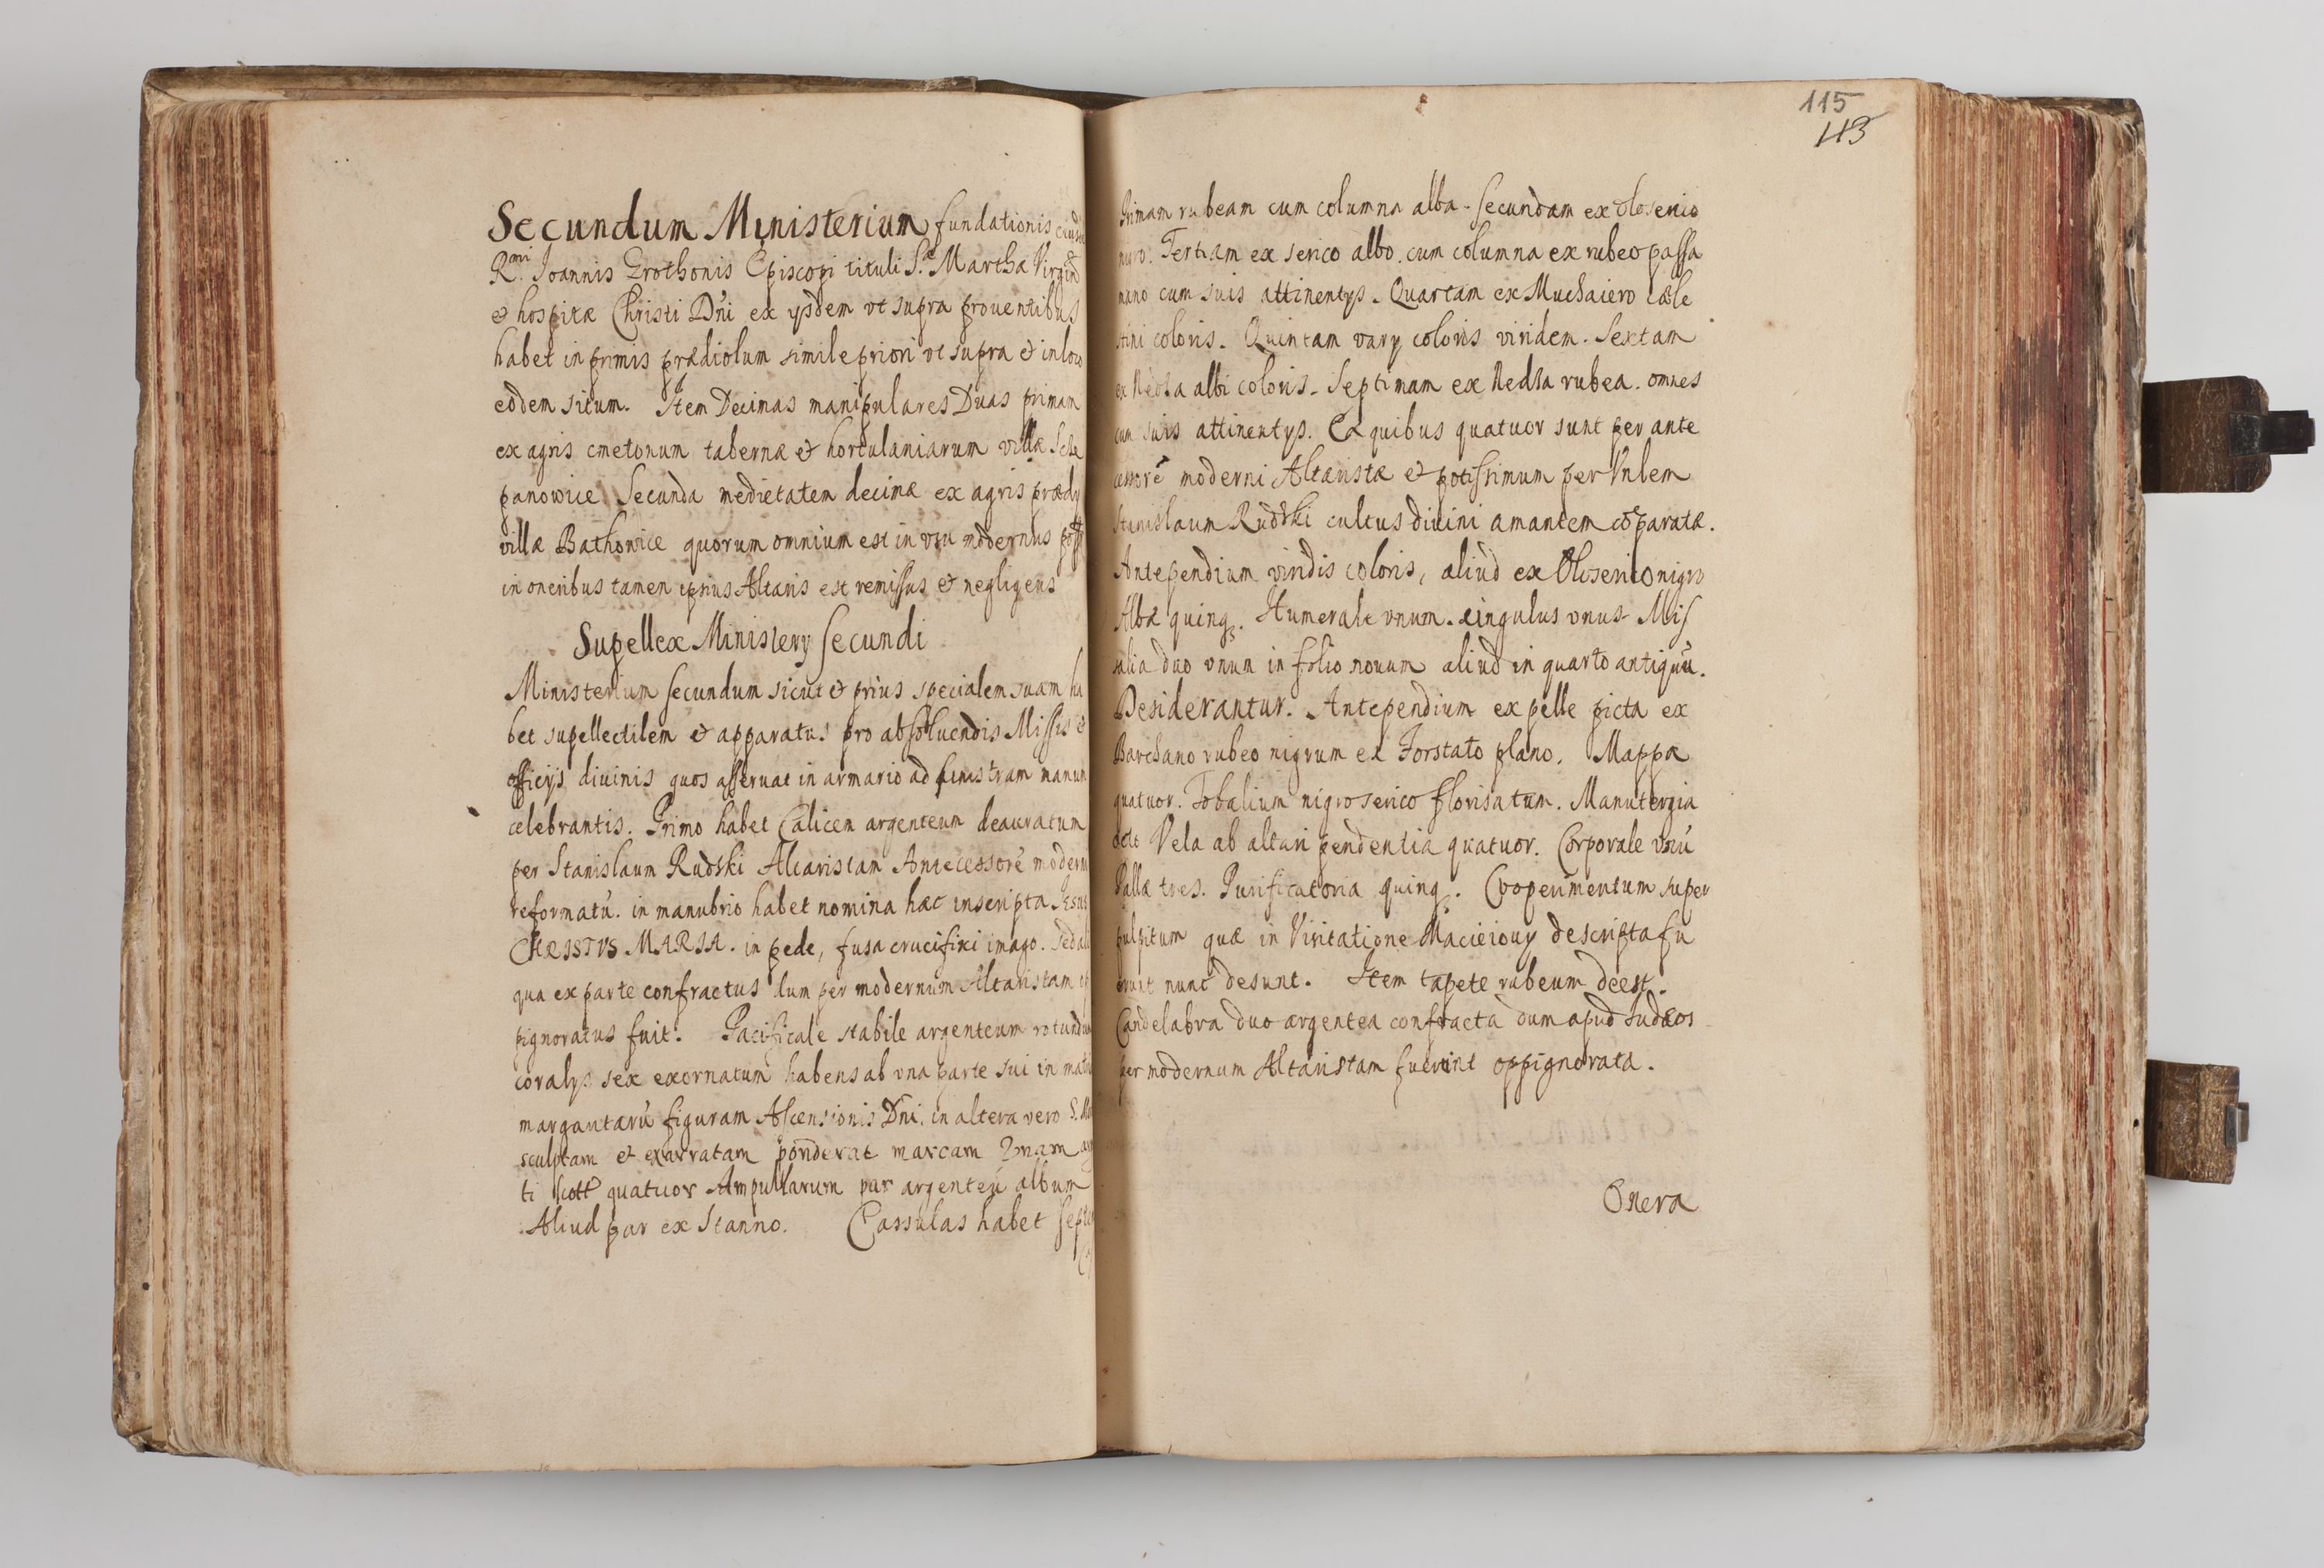 Secundum Ministerium fundationis
Rmi Joannis Grothonis Episcopi tituli S. Marthæ
& hospitæ Christi Dńi ex ijsdem vt supra prouentibus
habet in primis prædiolum simile priori vt supra & in loco
eodem situm. Item Decimas manipulares Duas primam
ex agris cmetonum tabernæ & hortulaniarum villæ Scze
panowice Secunda medietatem decimæ ex agris prædij
villæ Bathowice quorum omnium est in vsu modernus
in oneribus tamen ipsius Altaris est remissus & negligens
Supellex Ministerij secundi
Ministerium secundum sicut & prius specialem suam ha
bet supellectilem & apparatus pro absoluendis Missis &
officijs diuinis quos asseruat in armario ad sinistram manum
celebrantis. Primo habet Calicem argenteum deauratum
per Stanislaum Rudski Altaristam Antecessorē moderni
reformatū. in manubrio habet nomina hæc inscripta Jesus
CHRISTVS MARIA. in pede, fusa crucifixi imago.
qua ex parte confractus dum per modernum Altaristam
pignoratus fuit. Pacificale stabile argenteum rotundum
coralijs sex exornatum habens ab vna parte sui in
margaritarū figuram Ascensionis Dńi, in altera vero S.
sculptam & exarratam ponderat marcam
ti scott quatuor Ampullarum par argenteū album
Aliud par ex Stanno. Cassulas habet septem
115
113
Primam rubeam cum columna alba. secundam ex oloserico
nigro. Tertiam ex serico albo cum columna ex rubeo passa
mano cum suis attinentijs. Quartam ex Muchaiero cæle
stini coloris. Quintam varij coloris viridem. Sextam
ex Kedra albi coloris. Septimam ex Kedra rubea. omnes
cum suis attinentijs. Ex quibus quatuor sunt per ante
cessorē moderni Altaristæ & potissimum per Vnlem
Stanislaum Rudski cultus diuini amantem cōparatæ.
Antependium viridis coloris, aliud ex Oloserico nigro
Albæ quinq. Humerale vnum. cingulus vnus. Mis
salia duo vnum in folio nouum aliud in quarto antiquū.
Desiderantur. Antependium ex pelle picta ex
Barchano rubeo nigrum ex Forstato plano. Mappæ
quatuor. Tobalium nigro serico florisatum. Manutergia
octo Vela ab altari pendentia quatuor. Corporale vnū
Pallæ tres. Purificatoria quinq. Cooperimentum super
pulpitum quæ in Visitatione Macieiouij descripta fu
erunt nunc desunt. Item tapete rubeum deest.
Candelabra duo argentea confracta dum apud Judæos
per modernum Altaristam fuerunt oppignorata.
Onera